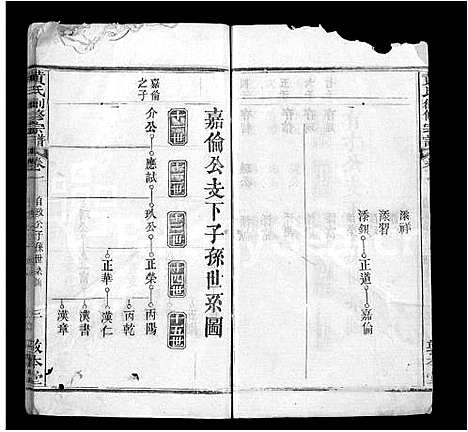 添祥
添智
添銀 正道 嘉倫
嘉倫公支下子孫世系圖
十一世
十二世
十三世
十四世
十五世
嘉倫之子
介公 應試 玖公 正榮 丙陽
丙乾
正華 漢仁
漢書
漢章
黃氏創修宗譜
卷
三
敦本堂